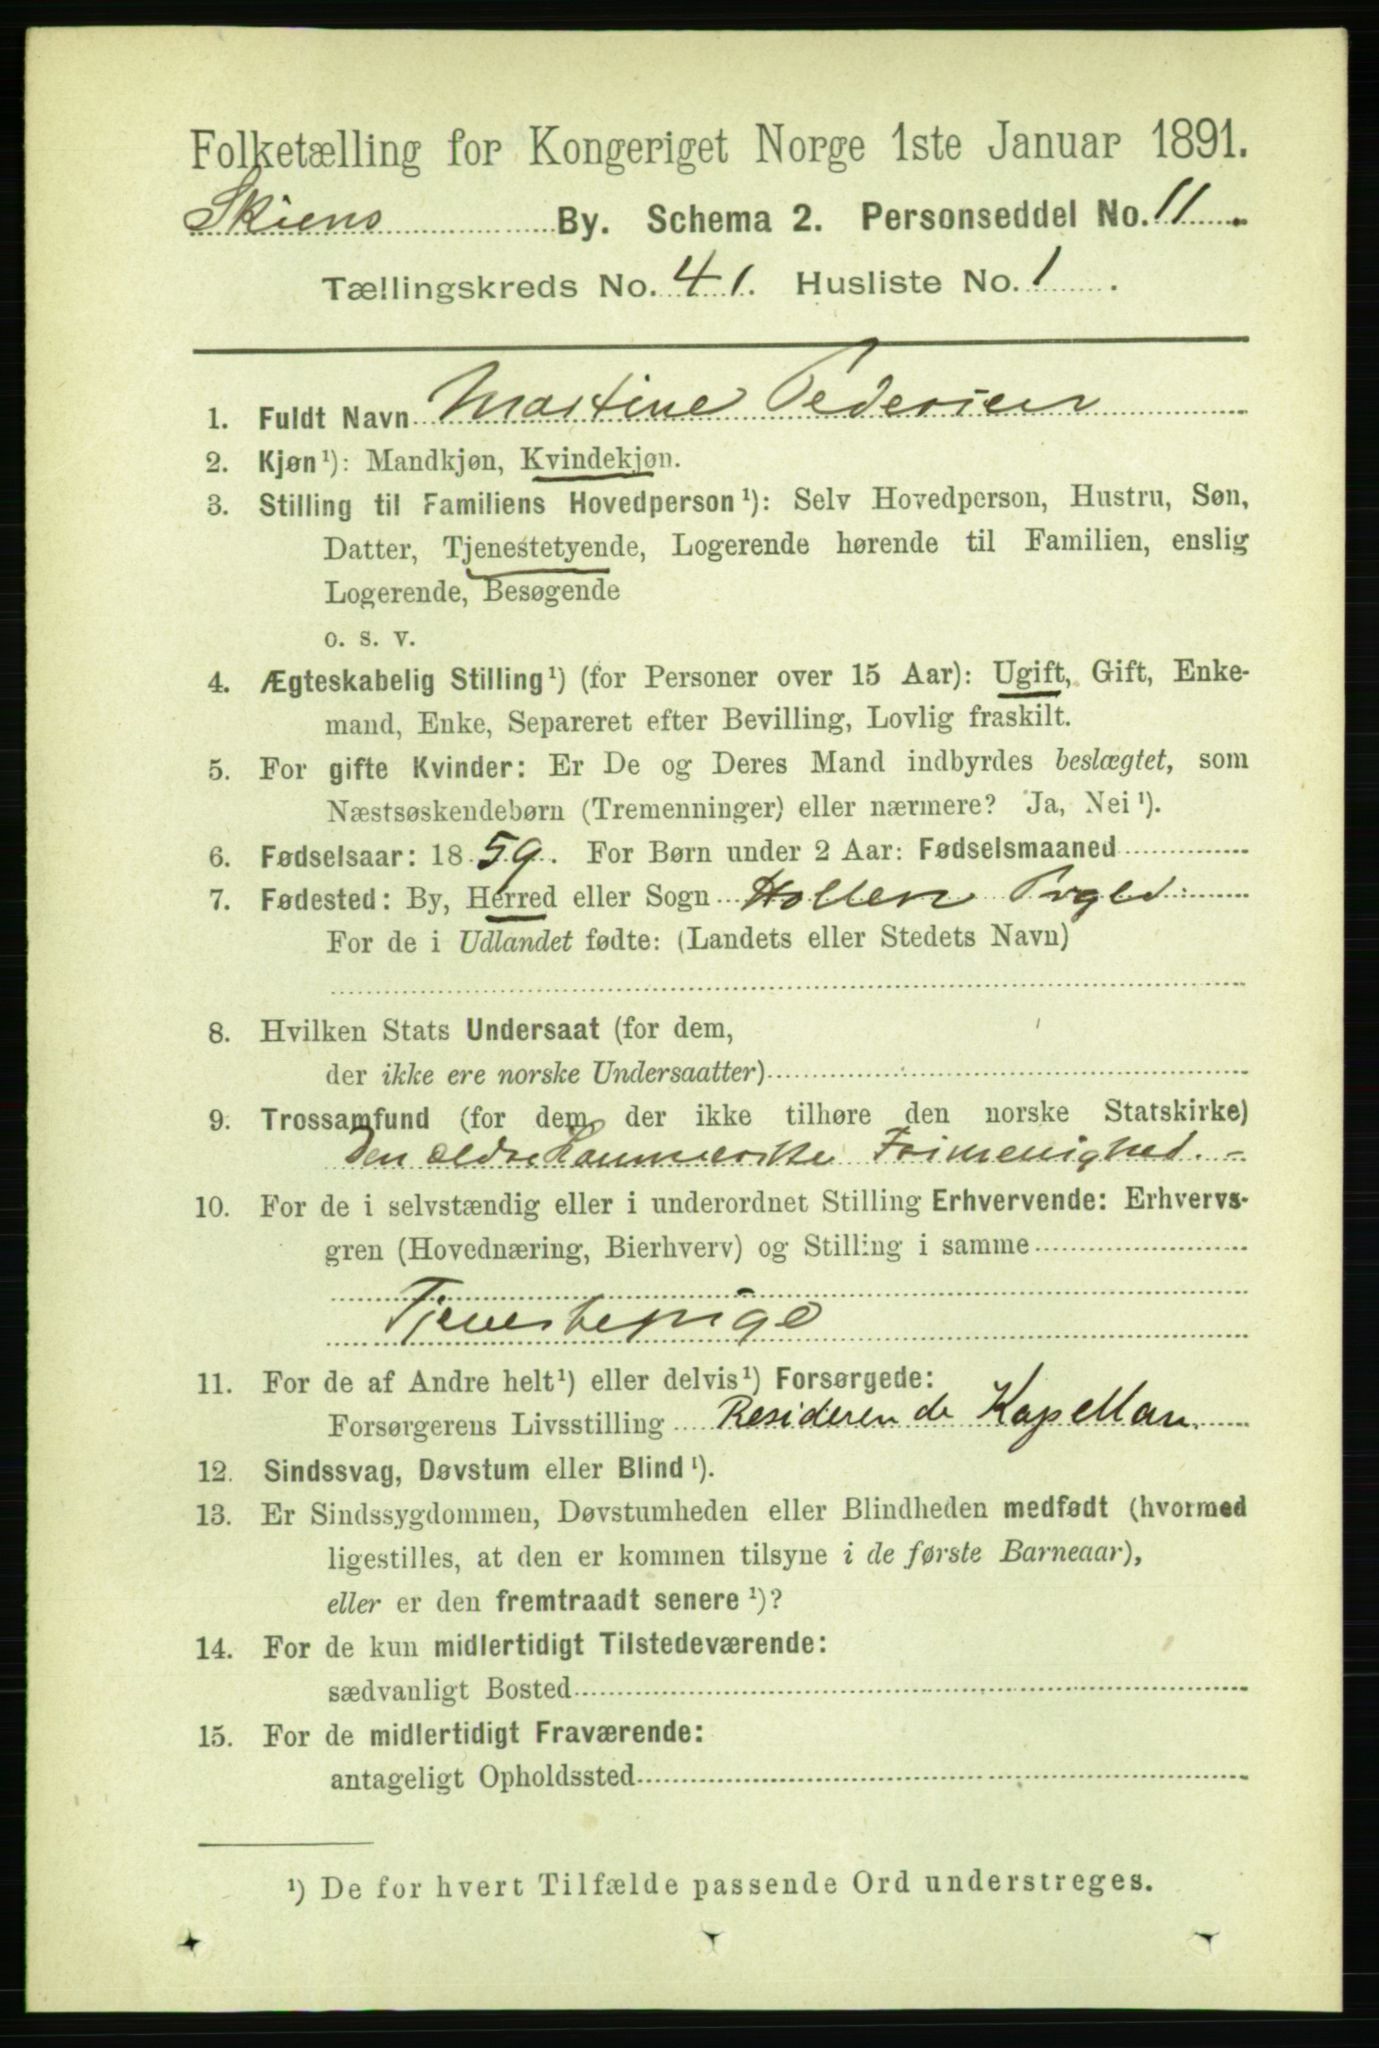 Folketælling for Kongeriget Norge 1ste Januar 1891.
Skiens By. Schema 2. Personseddel No. 11.
Tællingskreds No. 41. Husliste No. 1.
1. Fuldt Navn Martine Pedersen
2. Kjøn¹): Mandkjøn, Kvindekjøn.
3. Stilling til Familiens Hovedperson¹): Selv Hovedperson, Hustru, Søn,
Datter, Tjenestetyende, Logerende hørende til Familien, enslig
Logerende, Besøgende
o. s. v.
4. Ægteskabelig Stilling¹) (for Personer over 15 Aar): Ugift, Gift, Enke-
mand, Enke, Separeret efter Bevilling, Lovlig fraskilt.
5. For gifte Kvinder: Er De og Deres Mand indbyrdes beslægtet, som
Næstsøskendebørn (Tremenninger) eller nærmere? Ja, Nei¹).
6. Fødselsaar: 1859. For Børn under 2 Aar: Fødselsmaaned
7. Fødested: By, Herred eller Sogn Hollen Prgld:
For de i Udlandet fødte: (Landets eller Stedets Navn)
8. Hvilken Stats Undersaat (for dem,
der ikke ere norske Undersaatter)
9. Trossamfund (for dem, der ikke tilhøre den norske Statskirke)
Den ældre Lammerske Frimenighed.
10. For de i selvstændig eller i underordnet Stilling Erhvervende: Erhvervs-
gren (Hovednæring, Bierhverv) og Stilling i samme
Tjenestepige
11. For de af Andre helt¹) eller delvis¹) Forsørgede:
Forsørgerens Livsstilling Residerende Kapellan.
12. Sindssvag, Døvstum eller Blind¹).
13. Er Sindssygdommen, Døvstumheden eller Blindheden medfødt (hvormed
ligestilles, at den er kommen tilsyne i de første Barneaar),
eller er den fremtraadt senere¹)?
14. For de kun midlertidigt Tilstedeværende:
sædvanligt Bosted
15. For de midlertidigt Fraværende:
antageligt Opholdssted
¹) De for hvert Tilfælde passende Ord understreges.